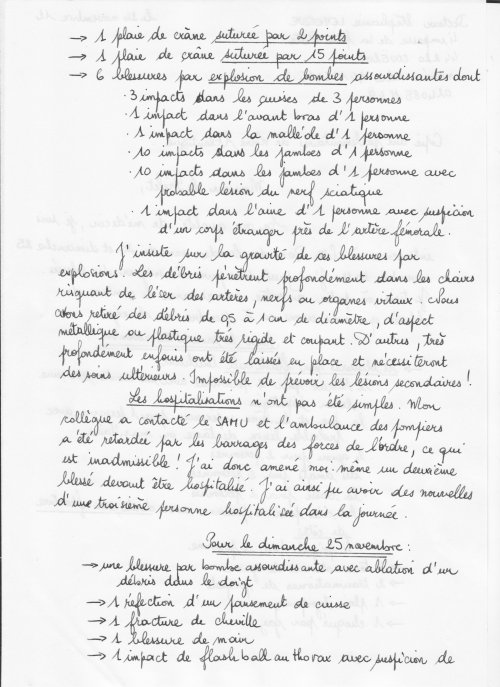 → 1 plaie de crâne suturée par 2 points
→ 1 plaie de crâne suturée par 15 points
→ 6 blessures par explosion de bombes assourdissantes dont
· 3 impacts dans les cuisses de 3 personnes
· 1 impact dans l'avant bras d'1 personne
· 1 impact dans la malléole d'1 personne
· 10 impacts dans les jambes d'1 personne
· 10 impacts dans les jambes d'1 personne avec
probable lésion du nerf sciatique
· 1 impact dans l'aine d'1 personne avec suspicion
d'un corps étranger près de l'artère fémorale.
J'insiste sur la gravité de ces blessures par
explosions. Les débris pénètrent profondément dans les chairs
risquant de léser des artères, nerfs ou organes vitaux. Nous
avons retiré des débris de 0,5 à 1 cm de diamètre, d'aspect
métallique ou plastique très rigide et coupant. D'autres, très
profondément enfouis ont été laissés en place et nécessiteront
des soins ultérieurs. Impossible de prévoir les lésions secondaires !
Les hospitalisations n'ont pas été simples. Mon
collègue a contacté le SAMU et l'ambulance des pompiers
a été retardée par les barrages des forces de l'ordre, ce qui
est inadmissible ! J'ai donc amené moi-même un deuxième
blessé devant être hospitalisé. J'ai ainsi pu avoir des nouvelles
d'une troisième personne hospitalisée dans la journée.
Pour le dimanche 25 novembre :
→ une blessure par bombe assourdissante avec ablation d'un
débris dans le doigt
→ 1 réfection d'un pansement de cuisse
→ 1 fracture de cheville
→ 1 blessure de main
→ 1 impact de flash ball au thorax avec suspicion de